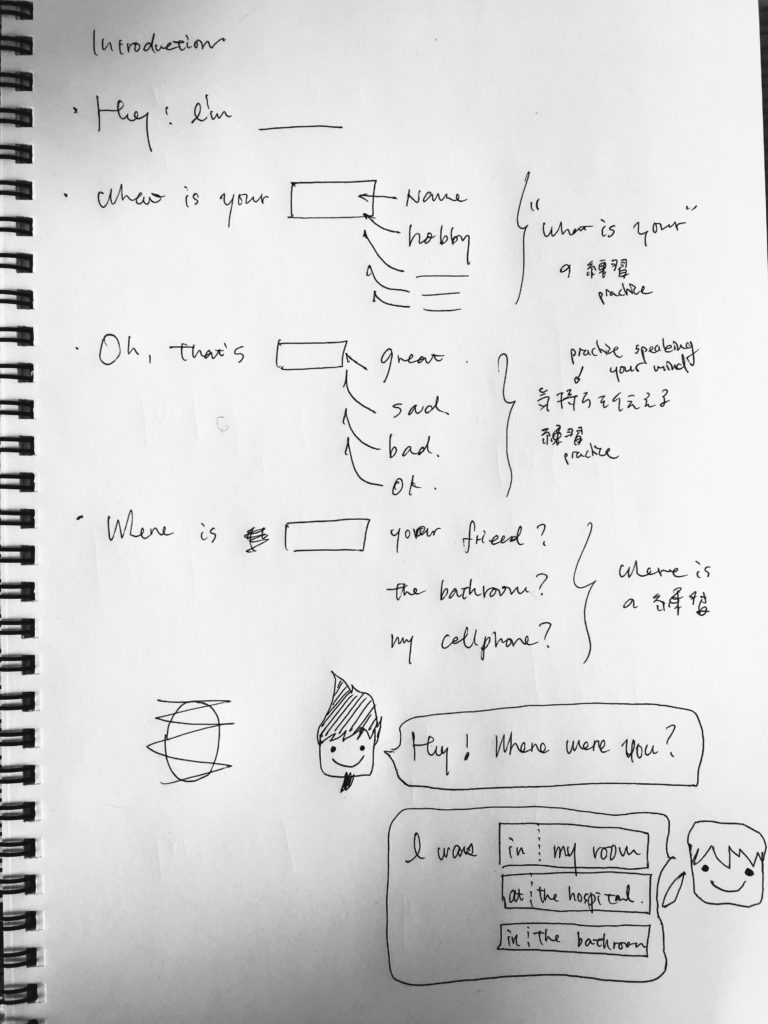 Introduction
· Hey! I'm ____
· What is your
Name
hobby
"What is your"
の 練習
practice
· Oh, that's
great.
sad.
bad.
OK.
practice speaking
your mind
気持ちを伝える
練習
practice
· Where is
your friend?
the bathroom?
my cellphone?
Where is
の 練習
Hey! Where were you?
I was
in my room
at the hospital.
in the bathroom